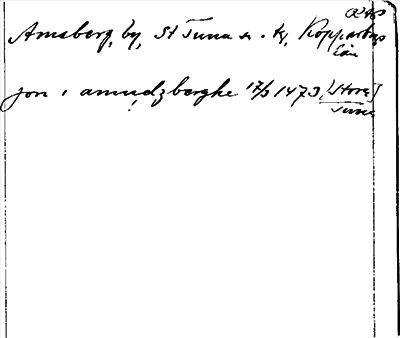 Amsberg, by, St Tuna sn. Kopparbergs
län
jon i amudzberghe 17/3 1473 [Stora]
Tuna